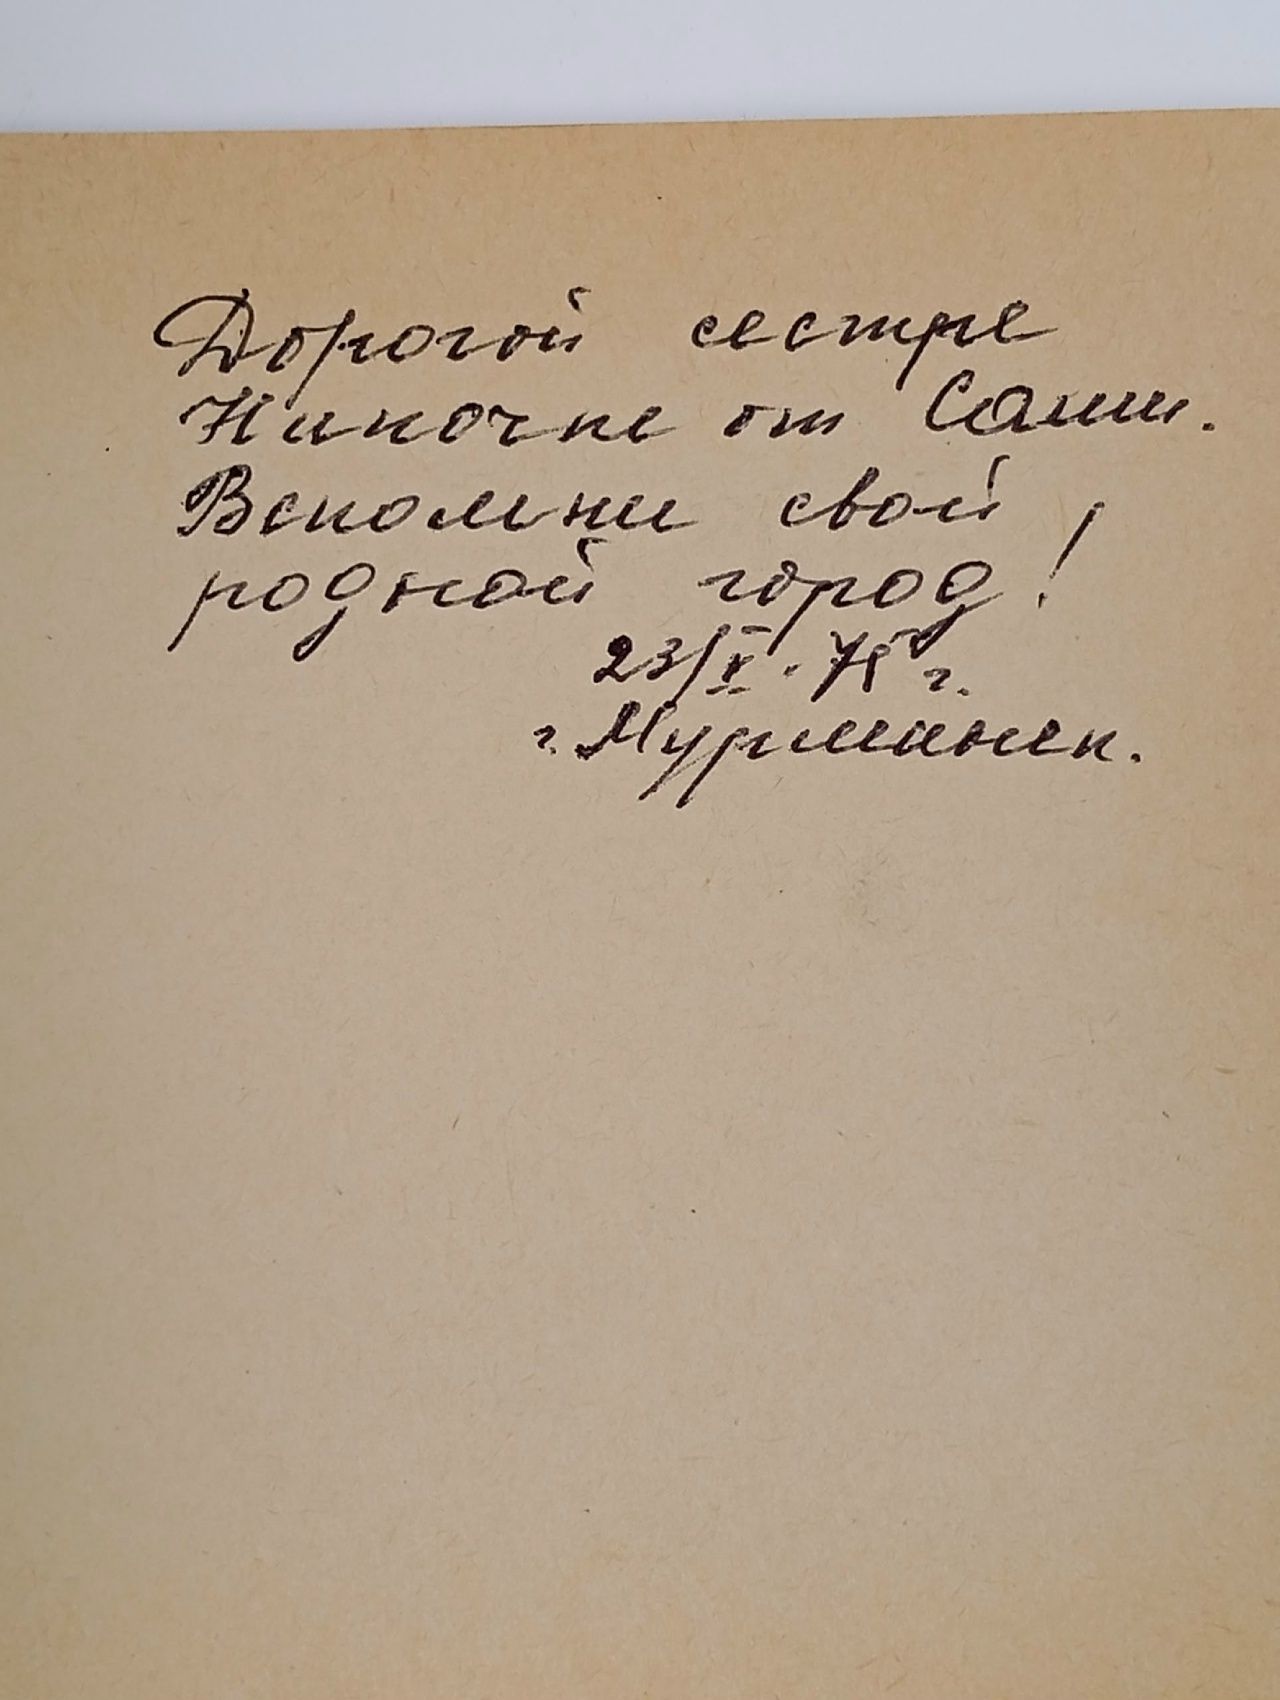 Дорогой сестре
Ниночке от Саши.
Вспомни свой
родной город!
23/X. 75 г.
г. Мурманск.